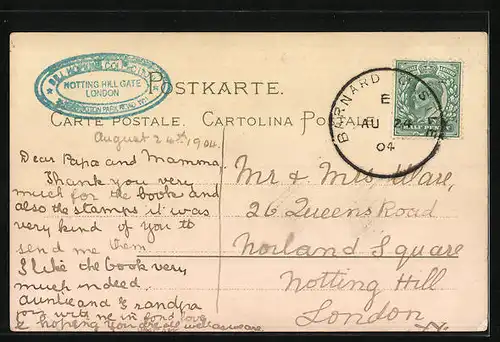 NOTTING HILL GATE
LONDON
POSTKARTE.
CARTE POSTALE. CARTOLINA POSTALE.
BARNARD
E
AU 24
04
August 24th 1904.
Dear Papa and Mamma,
Thank you very
much for the book and
also the stamps it was
very kind of you to
send me them.
I like the book very
much indeed.
auntie and Grandpa
join with me in fond love
& hoping you are all well as we are
Mr & Mrs Ware,
26 Queens Road
Norland Square
Notting Hill
London